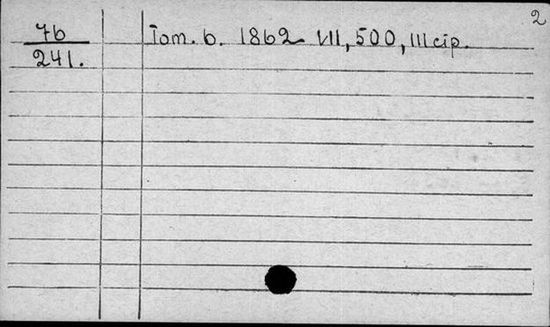 2
76
241.
Tom. 6. 1862 VII, 500, III cip.